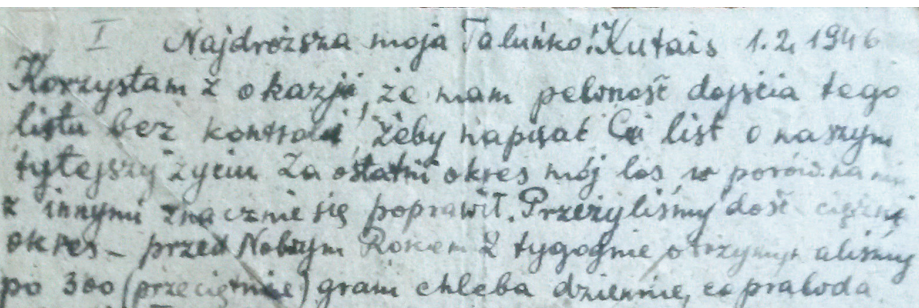 I Najdroższa moja Taluńko! Kutais 1.2.1946
Korzystam z okazji, że mam pewność dojścia tego
listu bez kontroli, żeby napisać Ci list o naszym
tytejszy życiu Za ostatni okres mój los w porównaniu
z innymi znacznie się poprawił. Przeżyliśmy dość ciężki
okres – przed Nowym Rokiem 2 tygodnie otrzymywaliśmy
po 300 (przeciętnie) gram chleba dziennie, co prawda